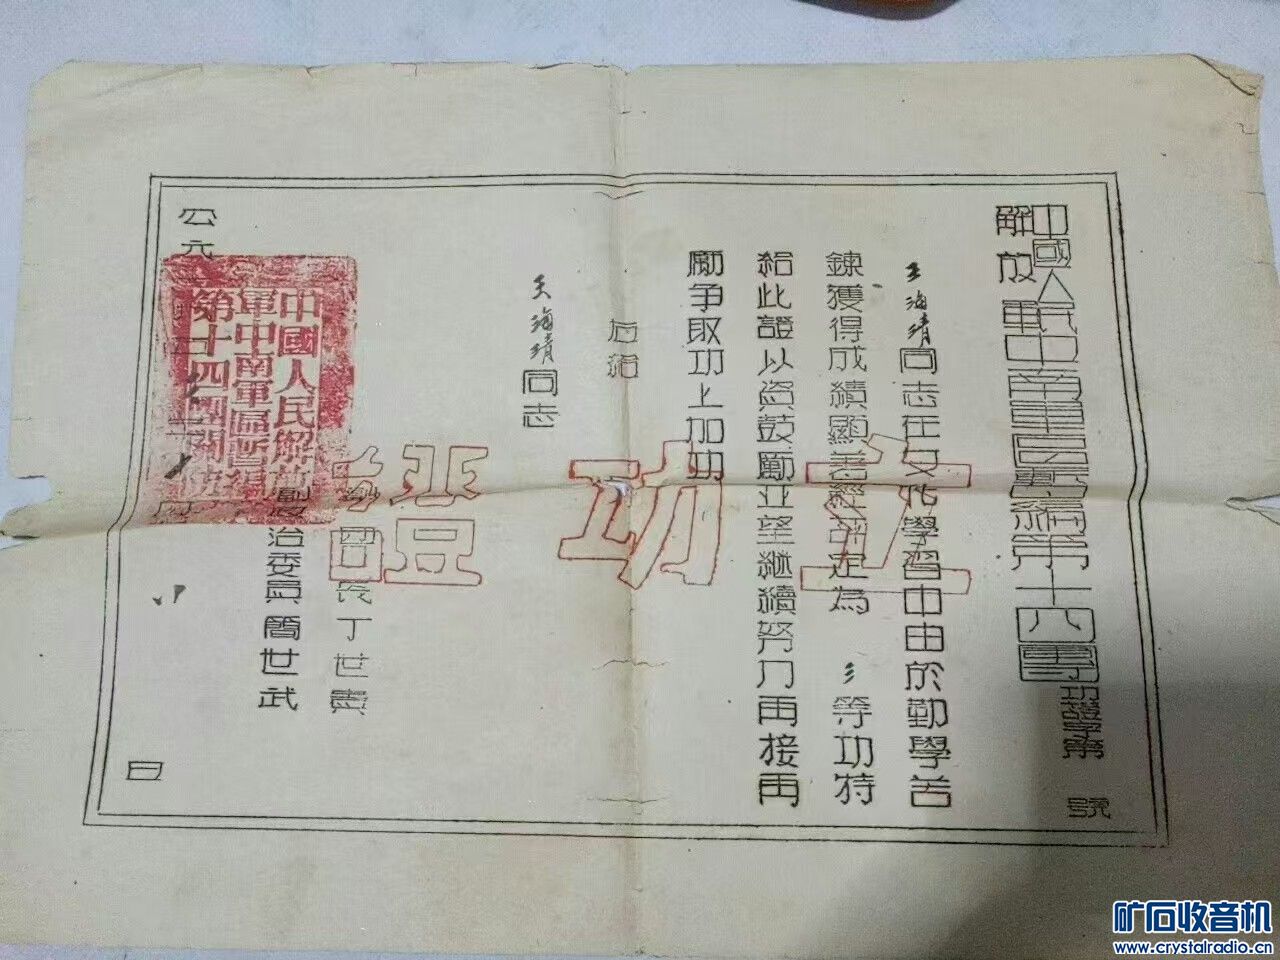 中國人民
解放軍中南軍區暫編第十四團
功證字第 號
立功證
王海靖同志在文化學習中由於勤學苦
鍊獲得成績顯著經評定為 三等功特
給此證以資鼓勵並望繼續努力再接再
勵争取功上加功
右給
王海靖同志
團長丁世
副政治委員簡世武
中國人民解放
軍中南軍區暫編
第十四團關防
公元 日
矿石收音机
www.crystalradio.cn